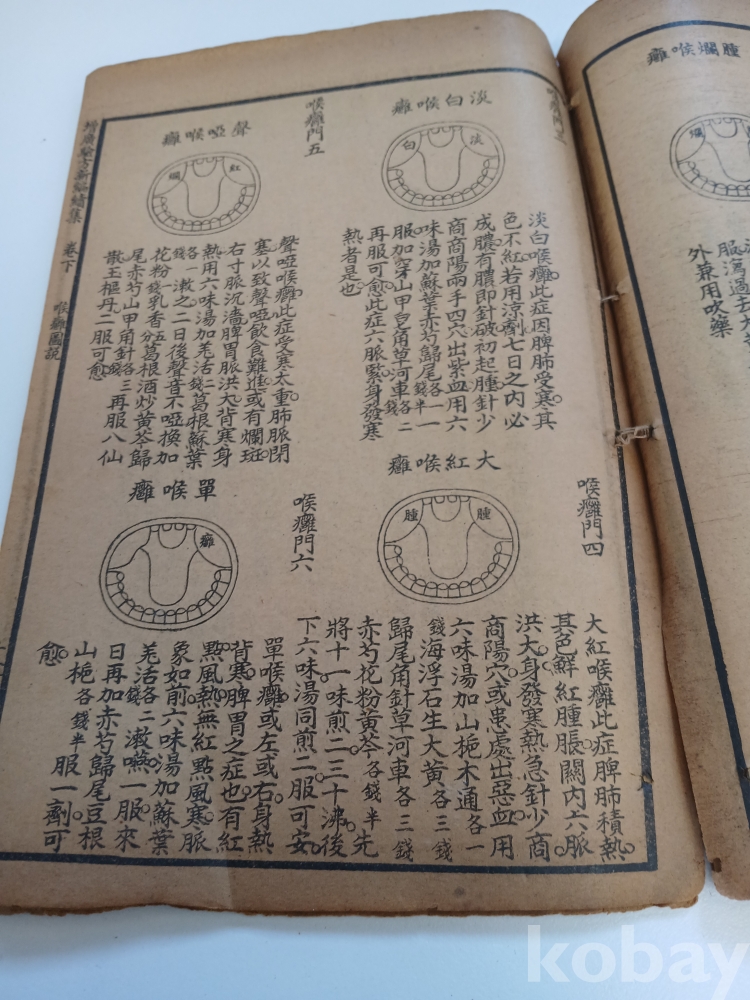 喉癰門三
淡白喉癰
淡
白
淡白喉癰此症因脾肺受寒其
色不紅若用涼劑七日之内必
成膿有膿即針破初起腫針少
商商陽兩手四穴出紫血用六
味湯加蘇葉赤芍歸尾各一錢半
服加穿山甲皂角草河車各二錢
再服可愈此症六脈緊身發寒
熱者是也
喉癰門四
大紅喉癰
腫
腫
大紅喉癰此症脾肺積熱
其色鮮紅腫脹關内六脈
洪大身發寒熱急針少商
商陽穴或患處出惡血用
六味湯加山梔木通各一
錢海浮石生大黃各三錢
歸尾角針草河車各三錢
赤芍花粉黃芩各錢半先
將十一味煎二三十沸後
下六味湯同煎二服可安
喉癰門五
聲啞喉癰
紅
爛
聲啞喉癰此症受寒太重肺脈閉
塞以致聲啞飲食難進或有爛斑
右寸脈沉濇脾胃脈洪大背寒身
熱用六味湯加羌活二錢葛根蘇葉
各一錢漱之二日後聲音不啞換加
花粉錢乳香五分葛根酒炒黃芩歸
尾赤芍山甲角針各三錢再服八仙
散玉樞丹二服可愈
喉癰門六
單喉癰
癰
單喉癰或左或右身熱
背寒脾胃之症也有紅
㸃風熱無紅㸃風寒脈
象如前六味湯加蘇葉
羌活各二錢漱嚥一服來
日再加赤芍歸尾豆根
山梔各錢半服一劑可
愈
增廣驗方新編續集 卷下 喉癰圖説
腫爛喉癰
爛
服瀉過去
外兼用吹藥
kobay